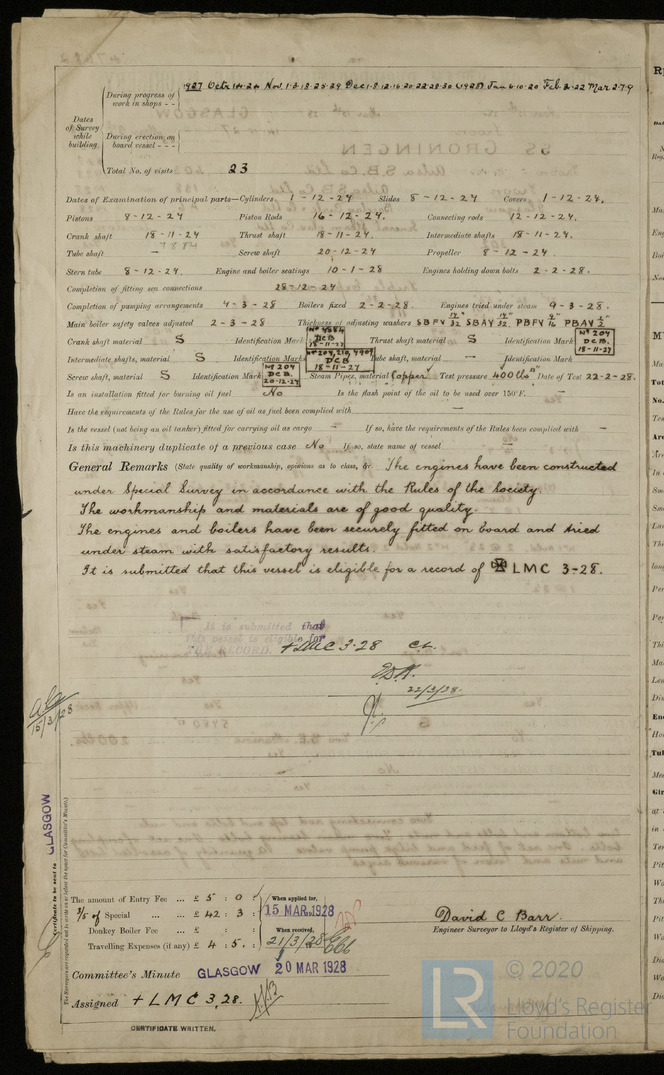 Dates of Survey while building.
During progress of work in shops - -
1927 Octr 14.24 Nov. 1.3.18.25.29 Dec 1.8.12.16.20.22.28.30 (1928) Jan 6.10.20 Feb 2.22 Mar 2.7.9
During erection on board vessel - - -
Total No. of visits 23
Dates of Examination of principal parts—Cylinders 1-12-27 Slides 8-12-27 Covers 1-12-27.
Pistons 8-12-27 Piston Rods 16-12-27. Connecting rods 12-12-27.
Crank shaft 18-11-27 Thrust shaft 18-11-27. Intermediate shafts 18-11-27.
Tube shaft — Screw shaft 20-12-27 Propeller 8-12-27.
Stern tube 8-12-27. Engine and boiler seatings 10-1-28 Engines holding down bolts 2-2-28.
Completion of fitting sea connections 28-12-27
Completion of pumping arrangements 7-3-28 Boilers fixed 2-2-28. Engines tried under steam 9-3-28.
Main boiler safety valves adjusted 2-3-28 Thickness of adjusting washers SBFV SBAV PBFV PBAV
Crank shaft material S Identification Mark DCB 18-11-27 Thrust shaft material S Identification Mark No 204 DCB. 18-11-27
Intermediate shafts, material S Identification Marks DCB 18-11-27 Tube shaft, material — Identification Mark
Screw shaft, material S Identification Mark No 204 DCB. 20-12-27 Steam Pipes, material Copper Test pressure 400 lbs □" Date of Test 22-2-28.
Is an installation fitted for burning oil fuel No Is the flash point of the oil to be used over 150°F. —
Have the requirements of the Rules for the use of oil as fuel been complied with —
Is the vessel (not being an oil tanker) fitted for carrying oil as cargo — If so, have the requirements of the Rules been complied with —
Is this machinery duplicate of a previous case No If so, state name of vessel
General Remarks (State quality of workmanship, opinions as to class, &c. The engines have been constructed
under Special Survey in accordance with the Rules of the Society.
The workmanship and materials are of good quality.
The engines and boilers have been securely fitted on board and tried
under steam with satisfactory results.
It is submitted that this vessel is eligible for a record of ✠ LMC 3-28.
It is submitted that
this vessel is eligible for
THE RECORD. + LMC 3.28 CL.
22/3/28.
15/3/28
GLASGOW
Certificate to be sent to
The amount of Entry Fee ... £ 5 : 0 :
3/5 of Special ... £ 42 : 3 :
Donkey Boiler Fee ... £ : :
Travelling Expenses (if any) £ 4 : 5 :
When applied for,
15 MAR 1928
When received,
21/3/28
David C Barr.
Engineer Surveyor to Lloyd's Register of Shipping.
Committee's Minute GLASGOW 20 MAR 1928
Assigned + LMC 3,28.
CERTIFICATE WRITTEN.
LR
© 2020
Lloyd's Register
Foundation